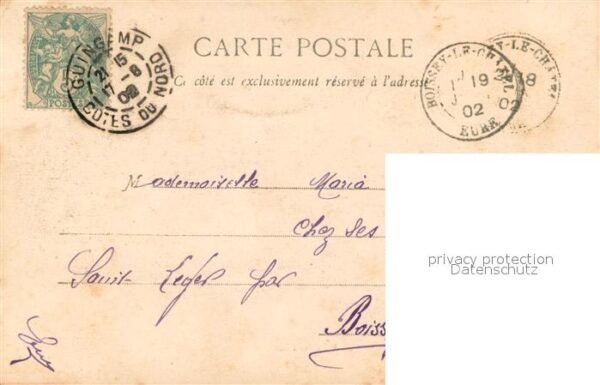 CARTE POSTALE
Ce côté est exclusivement réservé à l'adresse
GUINGAMP
21 15
17 -8
02
COTES DU NORD
POSTES
BOISSEY-LE-CHATEL
19
02
EURE
LE-CHATEL
18
02
Mademoiselle Maria
Chez Ses
Saint Leger par
Boiss
privacy protection
Datenschutz